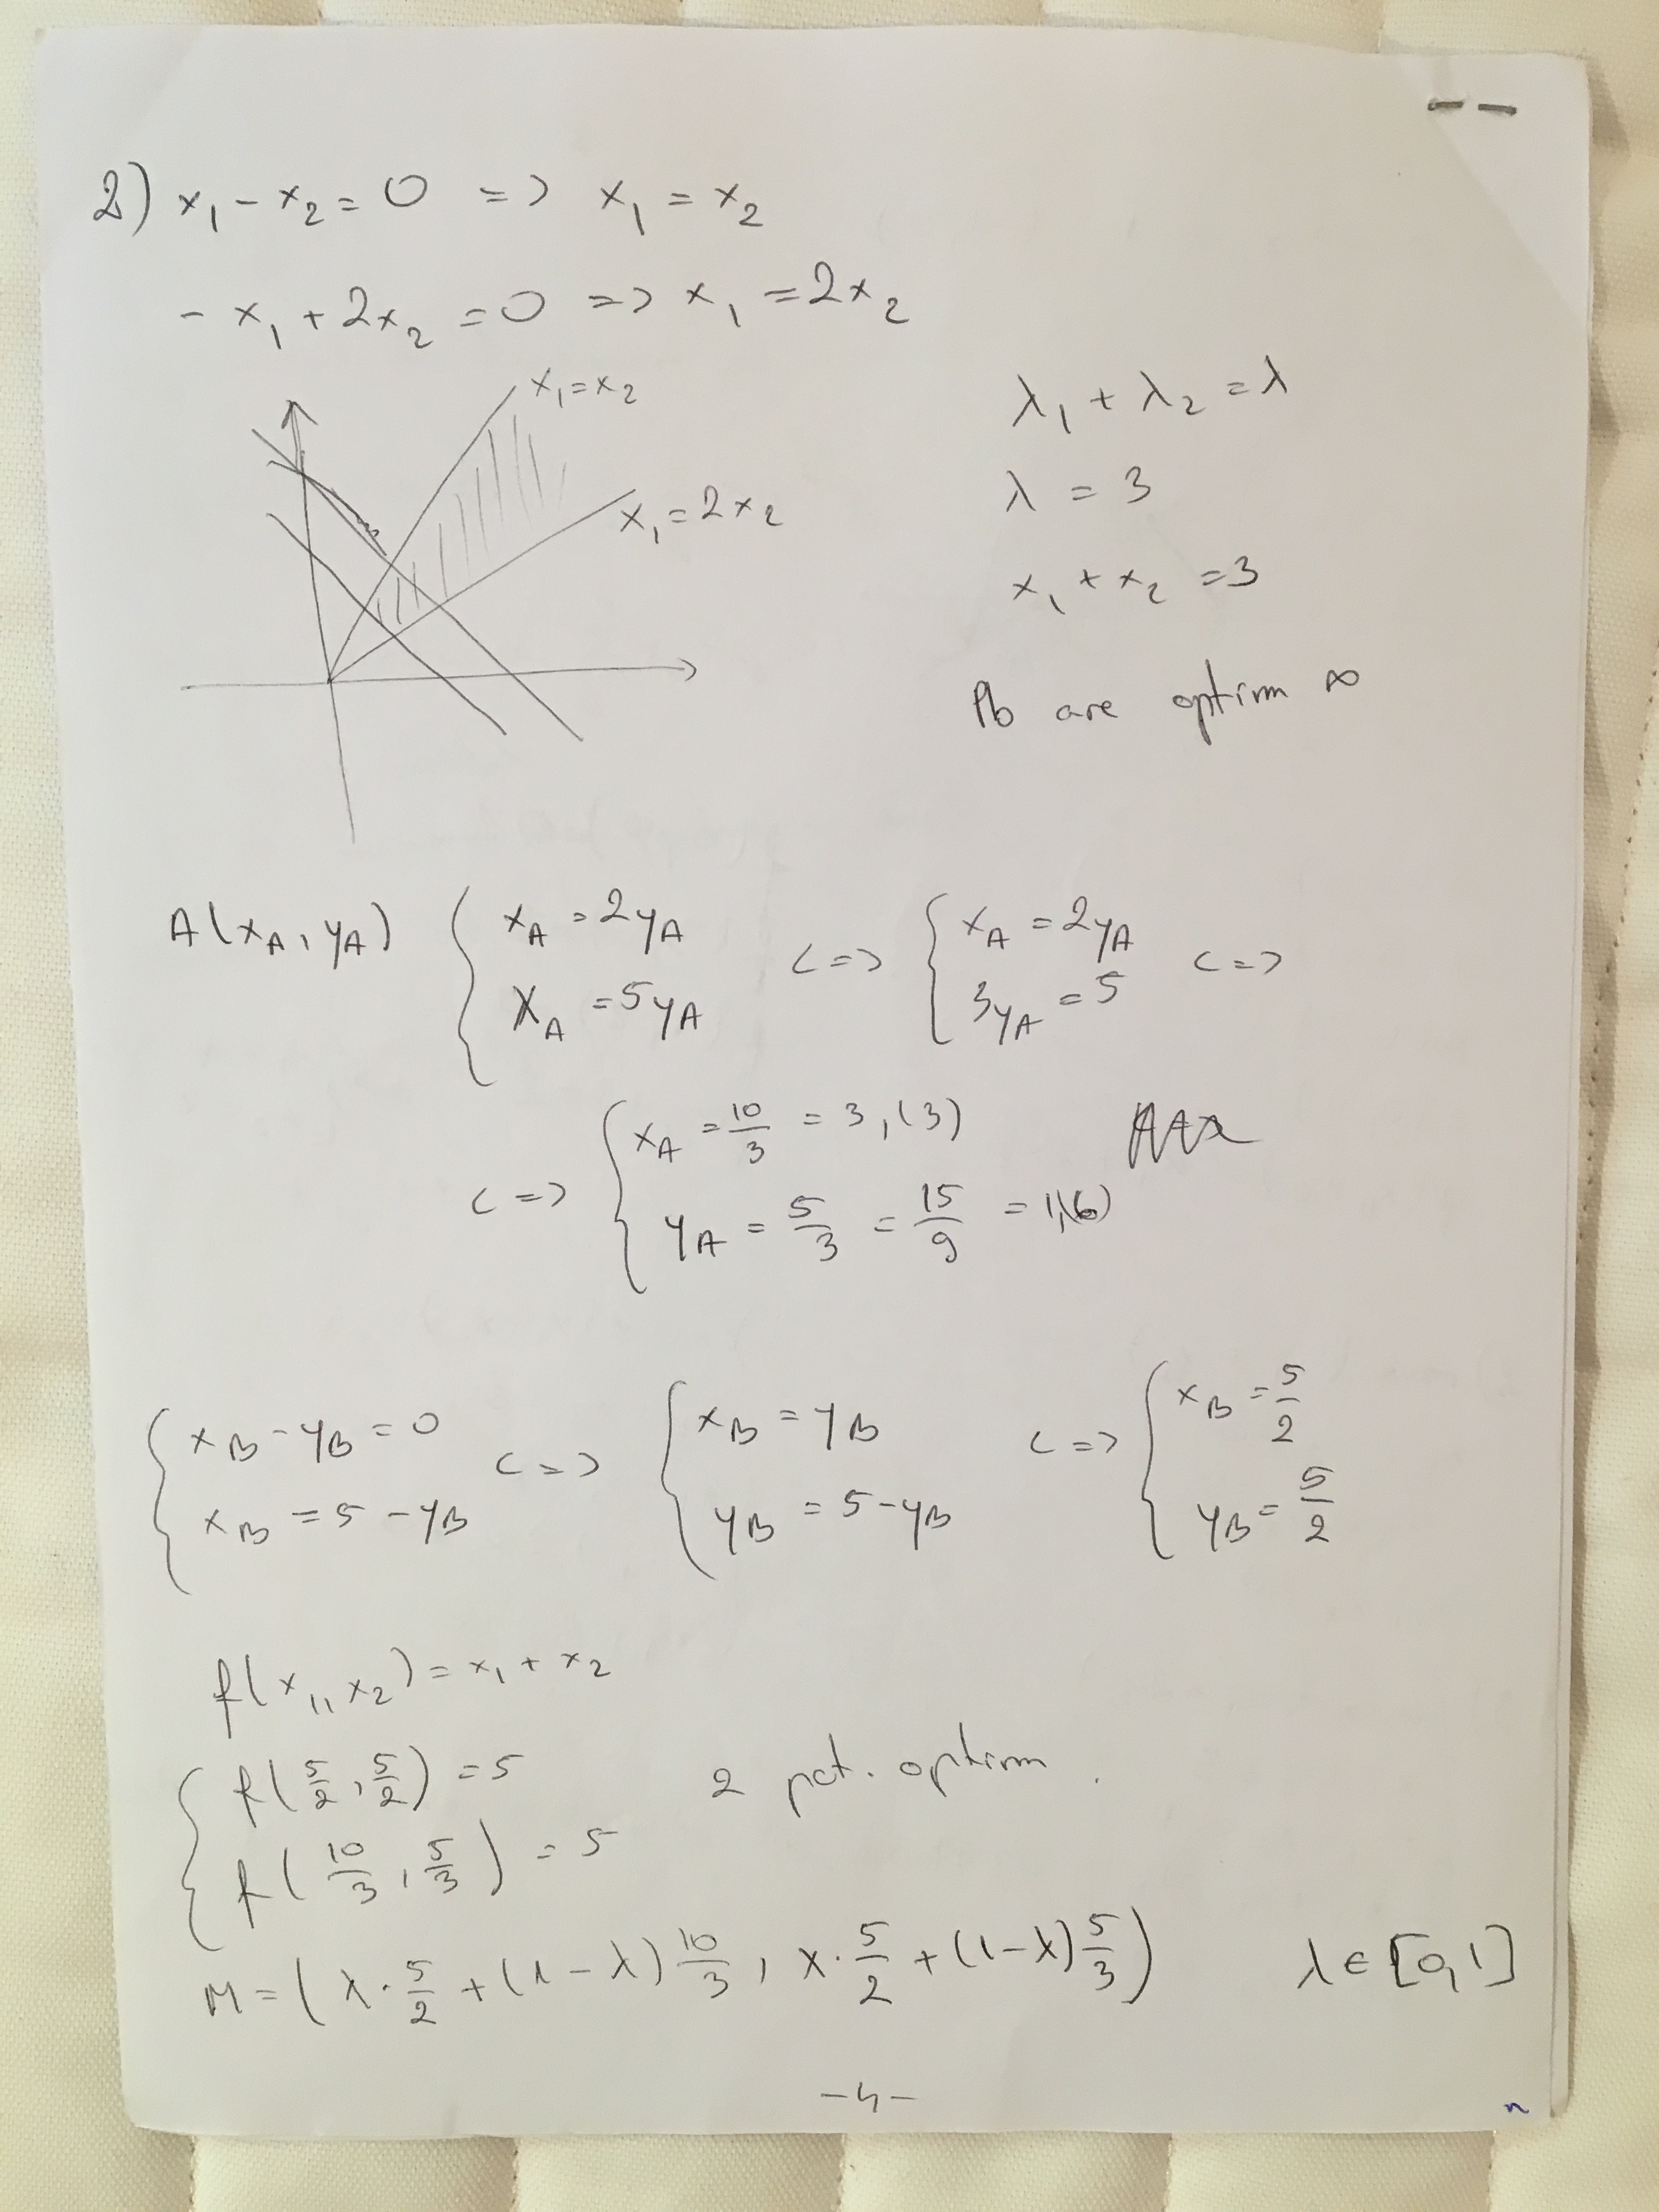 2) x₁ - x₂ = 0 => x₁ = x₂
- x₁ + 2x₂ = 0 => x₁ = 2x₂
x₁ = x₂
x₁ = 2x₂
λ₁ + λ₂ = λ
λ = 3
x₁ + x₂ = 3
Pb are optim ∞
A(x_A, y_A) { x_A = 2y_A <=> { x_A = 2y_A <=>
x_A = 5y_A 3y_A = 5
<=> { x_A = 10/3 = 3,(3)
y_A = 5/3 = 15/9 = 1,(6)
{ x_B - y_B = 0 <=> { x_B = y_B <=> { x_B = 5/2
x_B = 5 - y_B y_B = 5 - y_B y_B = 5/2
f(x₁, x₂) = x₁ + x₂
{ f(5/2, 5/2) = 5 2 pct. optim.
f(10/3, 5/3) = 5
M = (λ · 5/2 + (1 - λ) 10/3, λ · 5/2 + (1 - λ) 5/3) λ ∈ [0, 1]
- 4 -